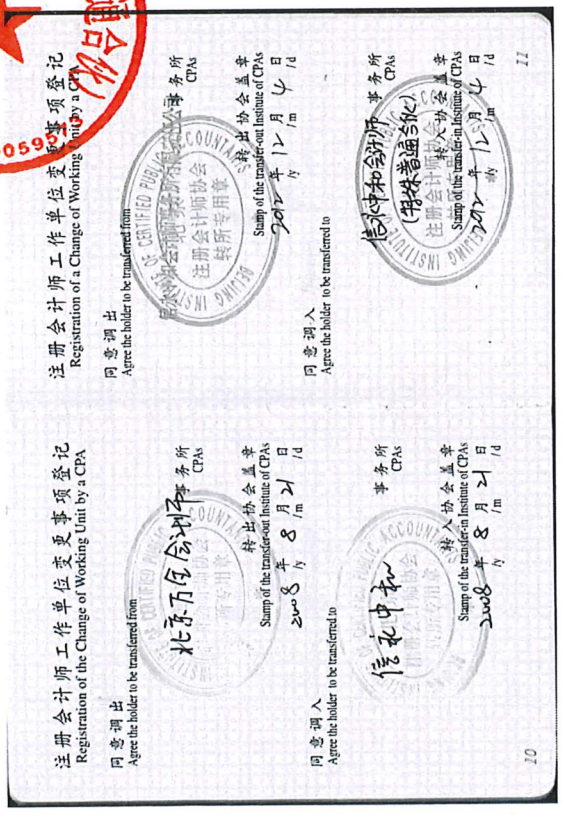 注册会计师工作单位变更事项登记
Registration of the Change of Working Unit by a CPA
同意调出
Agree the holder to be transferred from
北京万全会计师
事务所
CPAs
转出协会盖章
Stamp of the transfer-out Institute of CPAs
2008 年 8 月 21 日
/y /m /d
同意调入
Agree the holder to be transferred to
信永中和
事务所
CPAs
转入协会盖章
Stamp of the transfer-in Institute of CPAs
2008 年 8 月 21 日
/y /m /d
10
注册会计师工作单位变更事项登记
Registration of a Change of Working Unit by a CPA
同意调出
Agree the holder to be transferred from
事务所
CPAs
BEIJING INSTITUTE OF CERTIFIED PUBLIC ACCOUNTANTS
注册会计师协会
转所专用章
转出协会盖章
Stamp of the transfer-out Institute of CPAs
2012 年 12 月 4 日
/y /m /d
同意调入
Agree the holder to be transferred to
信永中和会计师
(特殊普通合伙)
事务所
CPAs
注册会计师协会
转入协会盖章
Stamp of the transfer-in Institute of CPAs
2012 年 12 月 4 日
/y /m /d
11
通合伙)